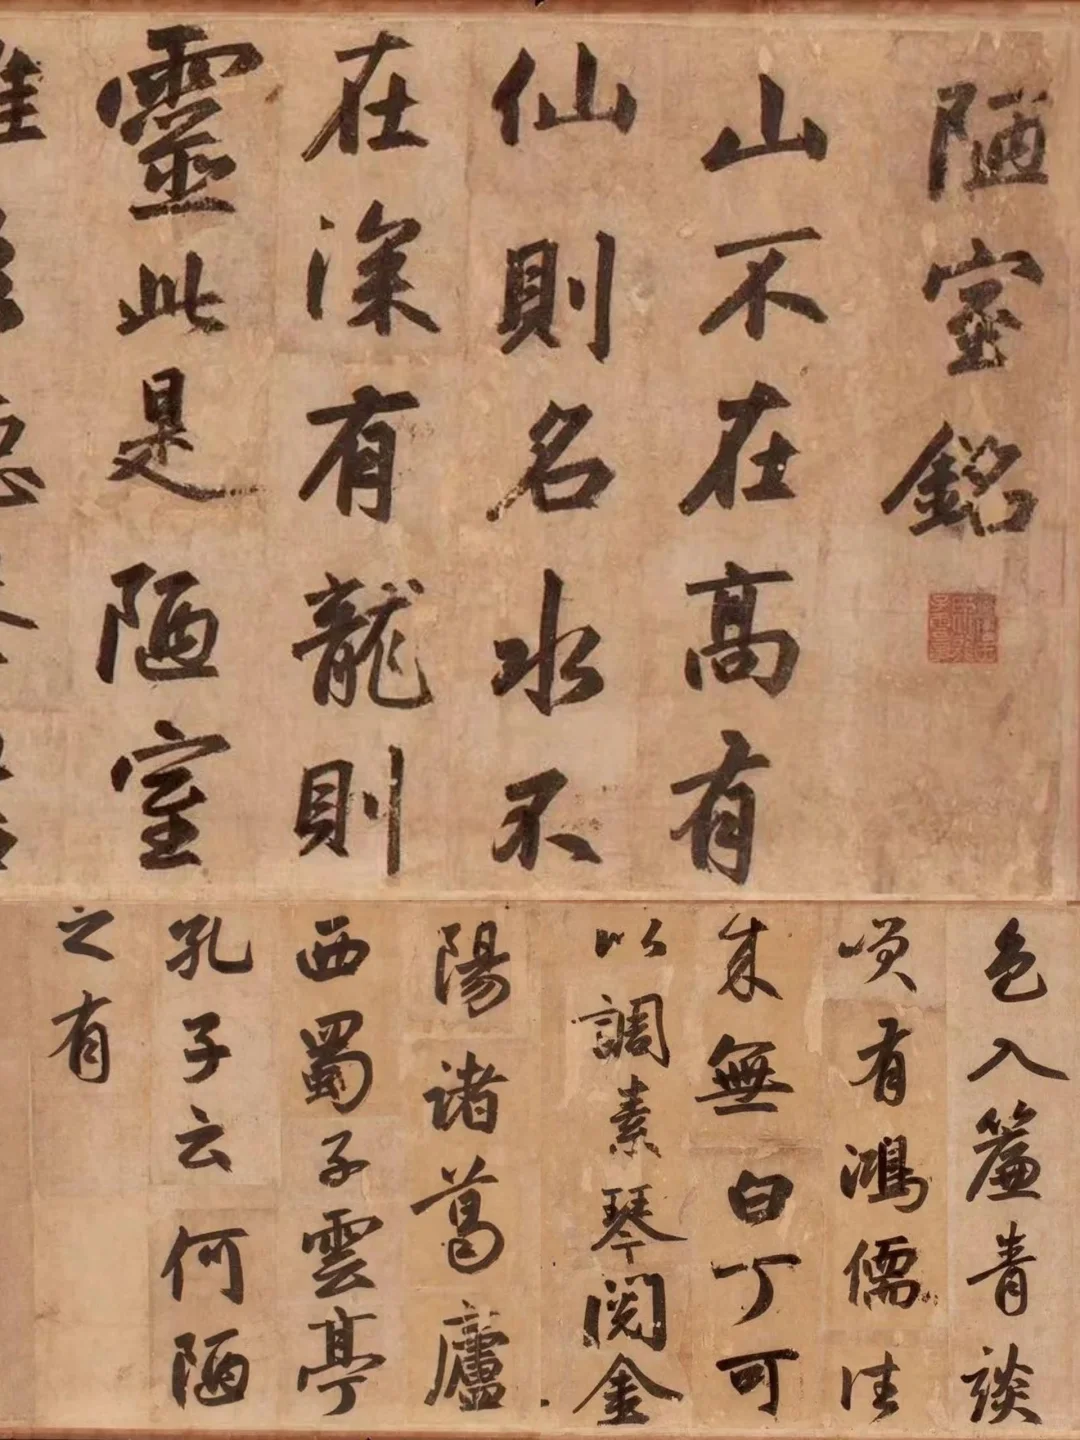 陋室銘
山不在高有
仙則名水不
在深有龍則
靈此是陋室
色入簾青談
咲有鴻儒往
來無白丁可
以調素琴閱金
陽諸葛廬
西蜀子雲亭
孔子云何陋
之有